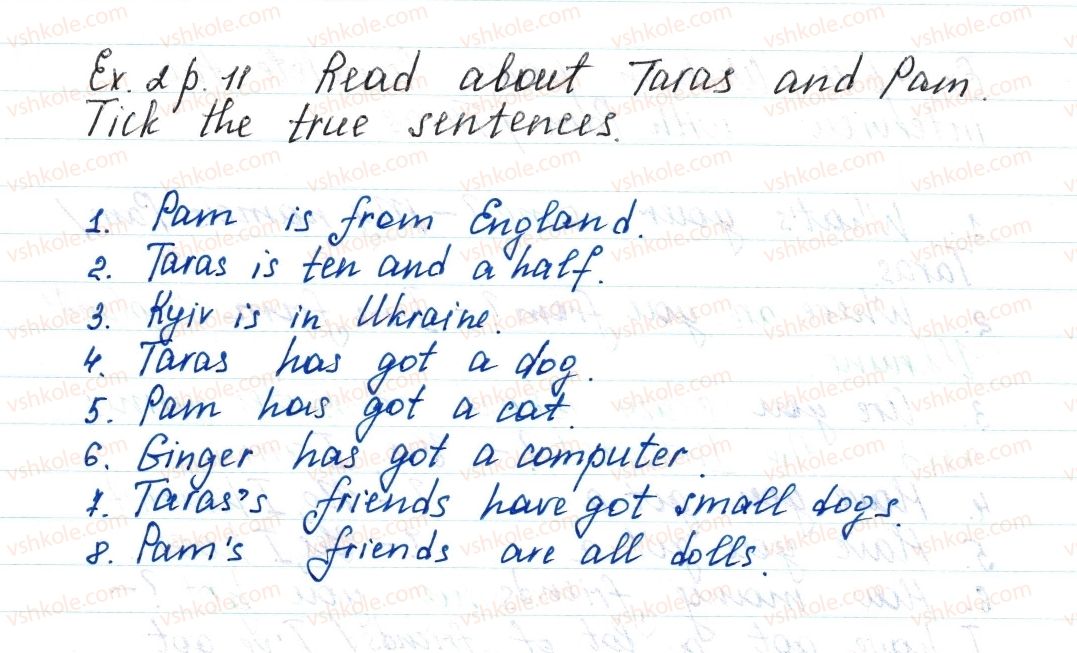 Ex. 2 p. 11 Read about Taras and Pam.
Tick the true sentences.
1. Pam is from England.
2. Taras is ten and a half.
3. Kyiv is in Ukraine.
4. Taras has got a dog.
5. Pam has got a cat.
6. Ginger has got a computer.
7. Taras's friends have got small dogs.
8. Pam's friends are all dolls.